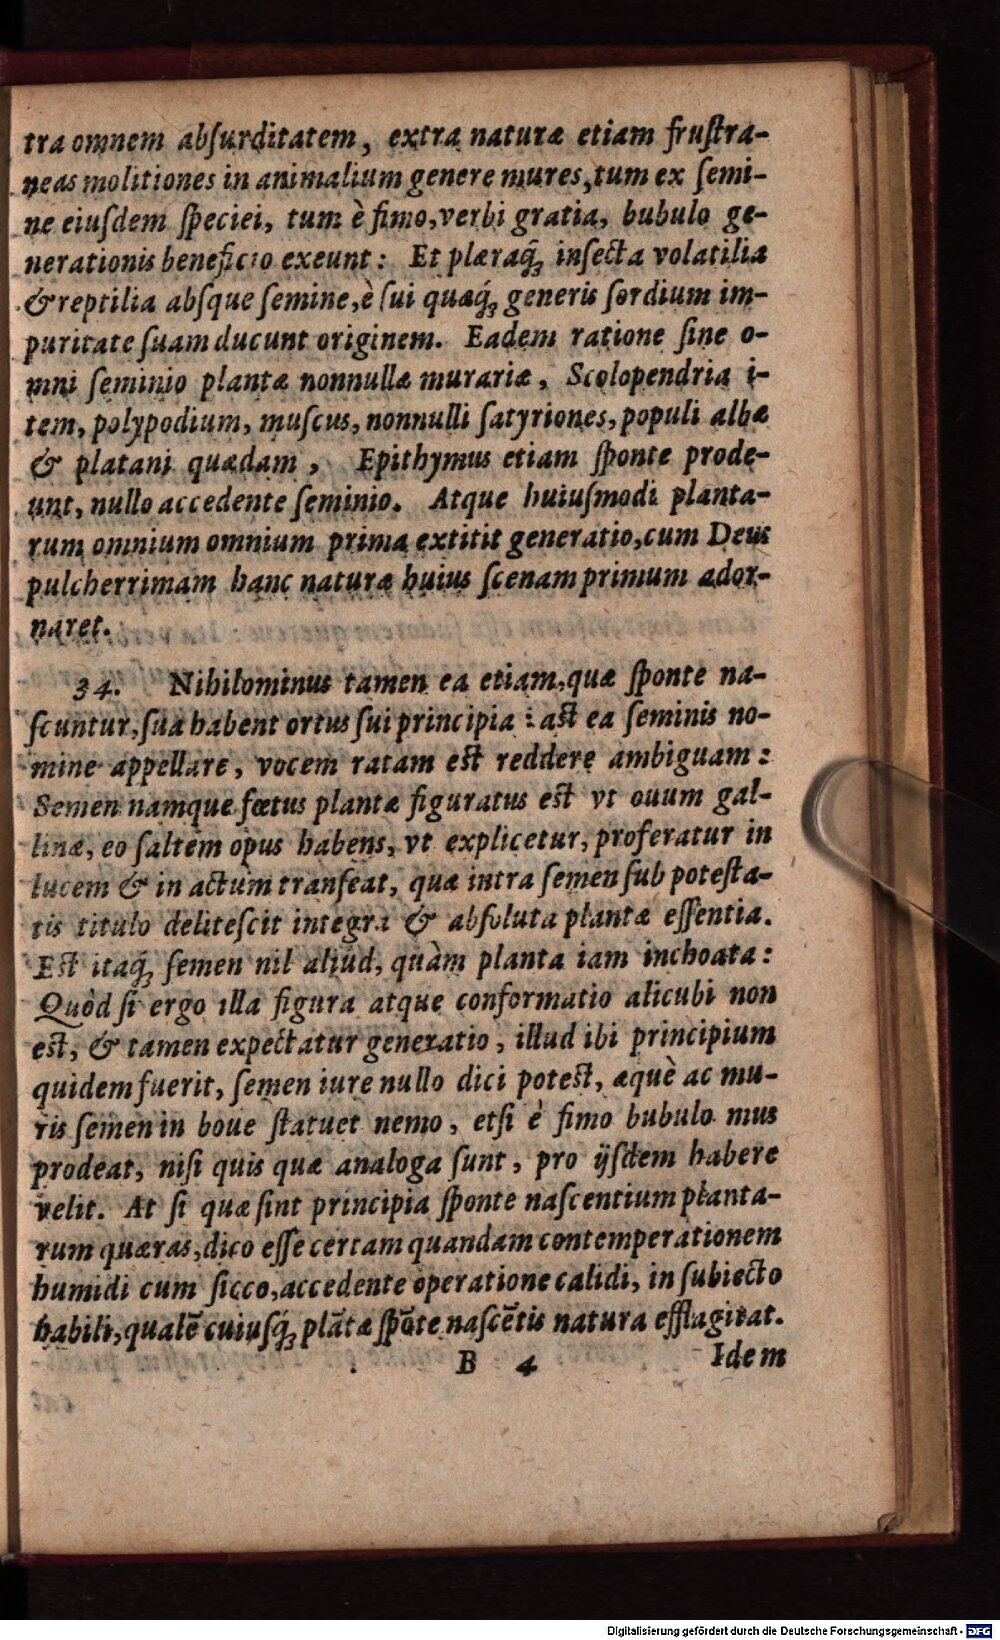 tra omnem abſurditatem, extra naturæ etiam fruſtra-
neas molitiones in animalium genere mures, tum ex ſemi-
ne eiuſdem ſpeciei, tum è fimo, verbi gratia, bubulo ge-
nerationis beneficio exeunt: Et plæraq́ꝫ inſecta volatilia
& reptilia abſque ſemine, è ſui quaq́ꝫ generis ſordium im-
puritate ſuam ducunt originem. Eadem ratione ſine o-
mni ſeminio plantæ nonnullæ murariæ, Scolopendria i-
tem, polypodium, muſcus, nonnulli ſatyriones, populi albæ
& platani quædam, Epithymus etiam ſponte prode-
unt, nullo accedente ſeminio. Atque huiuſmodi planta-
rum omnium omnium prima extitit generatio, cum Deus
pulcherrimam hanc naturæ huius ſcenam primum ador-
naret.
34. Nihilominus tamen ea etiam, quæ ſponte na-
ſcuntur, ſua habent ortus ſui principia: aſt ea ſeminis no-
mine appellare, vocem ratam eſt reddere ambiguam:
Semen namque fœtus plantæ figuratus eſt vt ouum gal-
linæ, eo ſaltem opus habens, vt explicetur, proferatur in
lucem & in actum tranſeat, quæ intra ſemen ſub poteſta-
tis titulo deliteſcit integra & abſoluta plantæ eſſentia.
Eſt itaq́ꝫ ſemen nil aliud, quàm planta iam inchoata:
Quòd ſi ergo illa figura atque conformatio alicubi non
eſt, & tamen expectatur generatio, illud ibi principium
quidem fuerit, ſemen iure nullo dici poteſt, æquè ac mu-
ris ſemen in boue ſtatuet nemo, etſi è fimo bubulo mus
prodeat, niſi quis quæ analoga ſunt, pro ijſdem habere
velit. At ſi quæ ſint principia ſponte naſcentium planta-
rum quæras, dico eſſe certam quandam contemperationem
humidi cum ſicco, accedente operatione calidi, in ſubiecto
habili, qualē cuiuſq́ꝫ plātæ ſpōte naſcētis natura efflagitat.
B 4 Idem
Digitalisierung gefördert durch die Deutsche Forschungsgemeinschaft - DFG